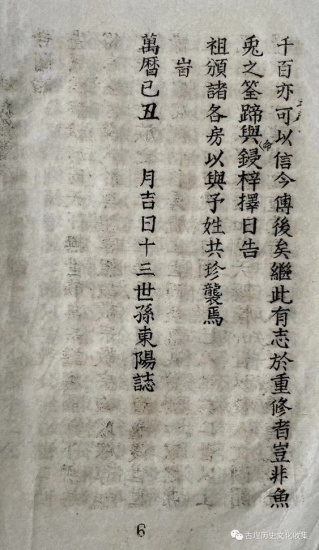 千百亦可以信今傳後矣繼此有志於重修者豈非魚
兎之筌蹄與鋟梓擇日告
祖頒諸各房以與子姓共珍襲焉
旹
萬曆己丑 月吉日十三世孫東陽誌
6
古埕历史文化收集